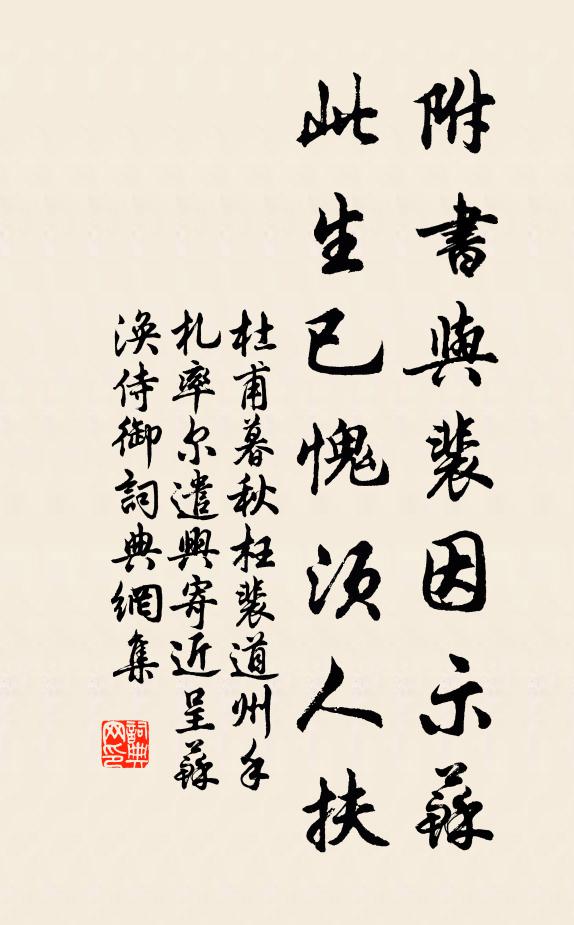 附書與裴因示蘇
此生已愧須人扶
杜甫暮秋枉裴道州手
札率尔遣興寄近呈蘇
渙侍御詞典網集
詞典
网印